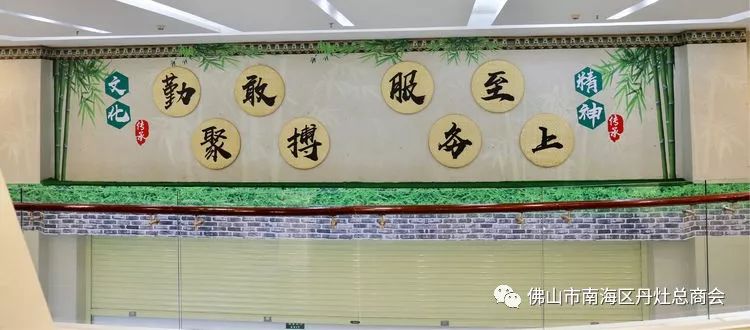 文化
传承
勤聚敢搏
服务至上
精神
传承
佛山市南海区丹灶总商会